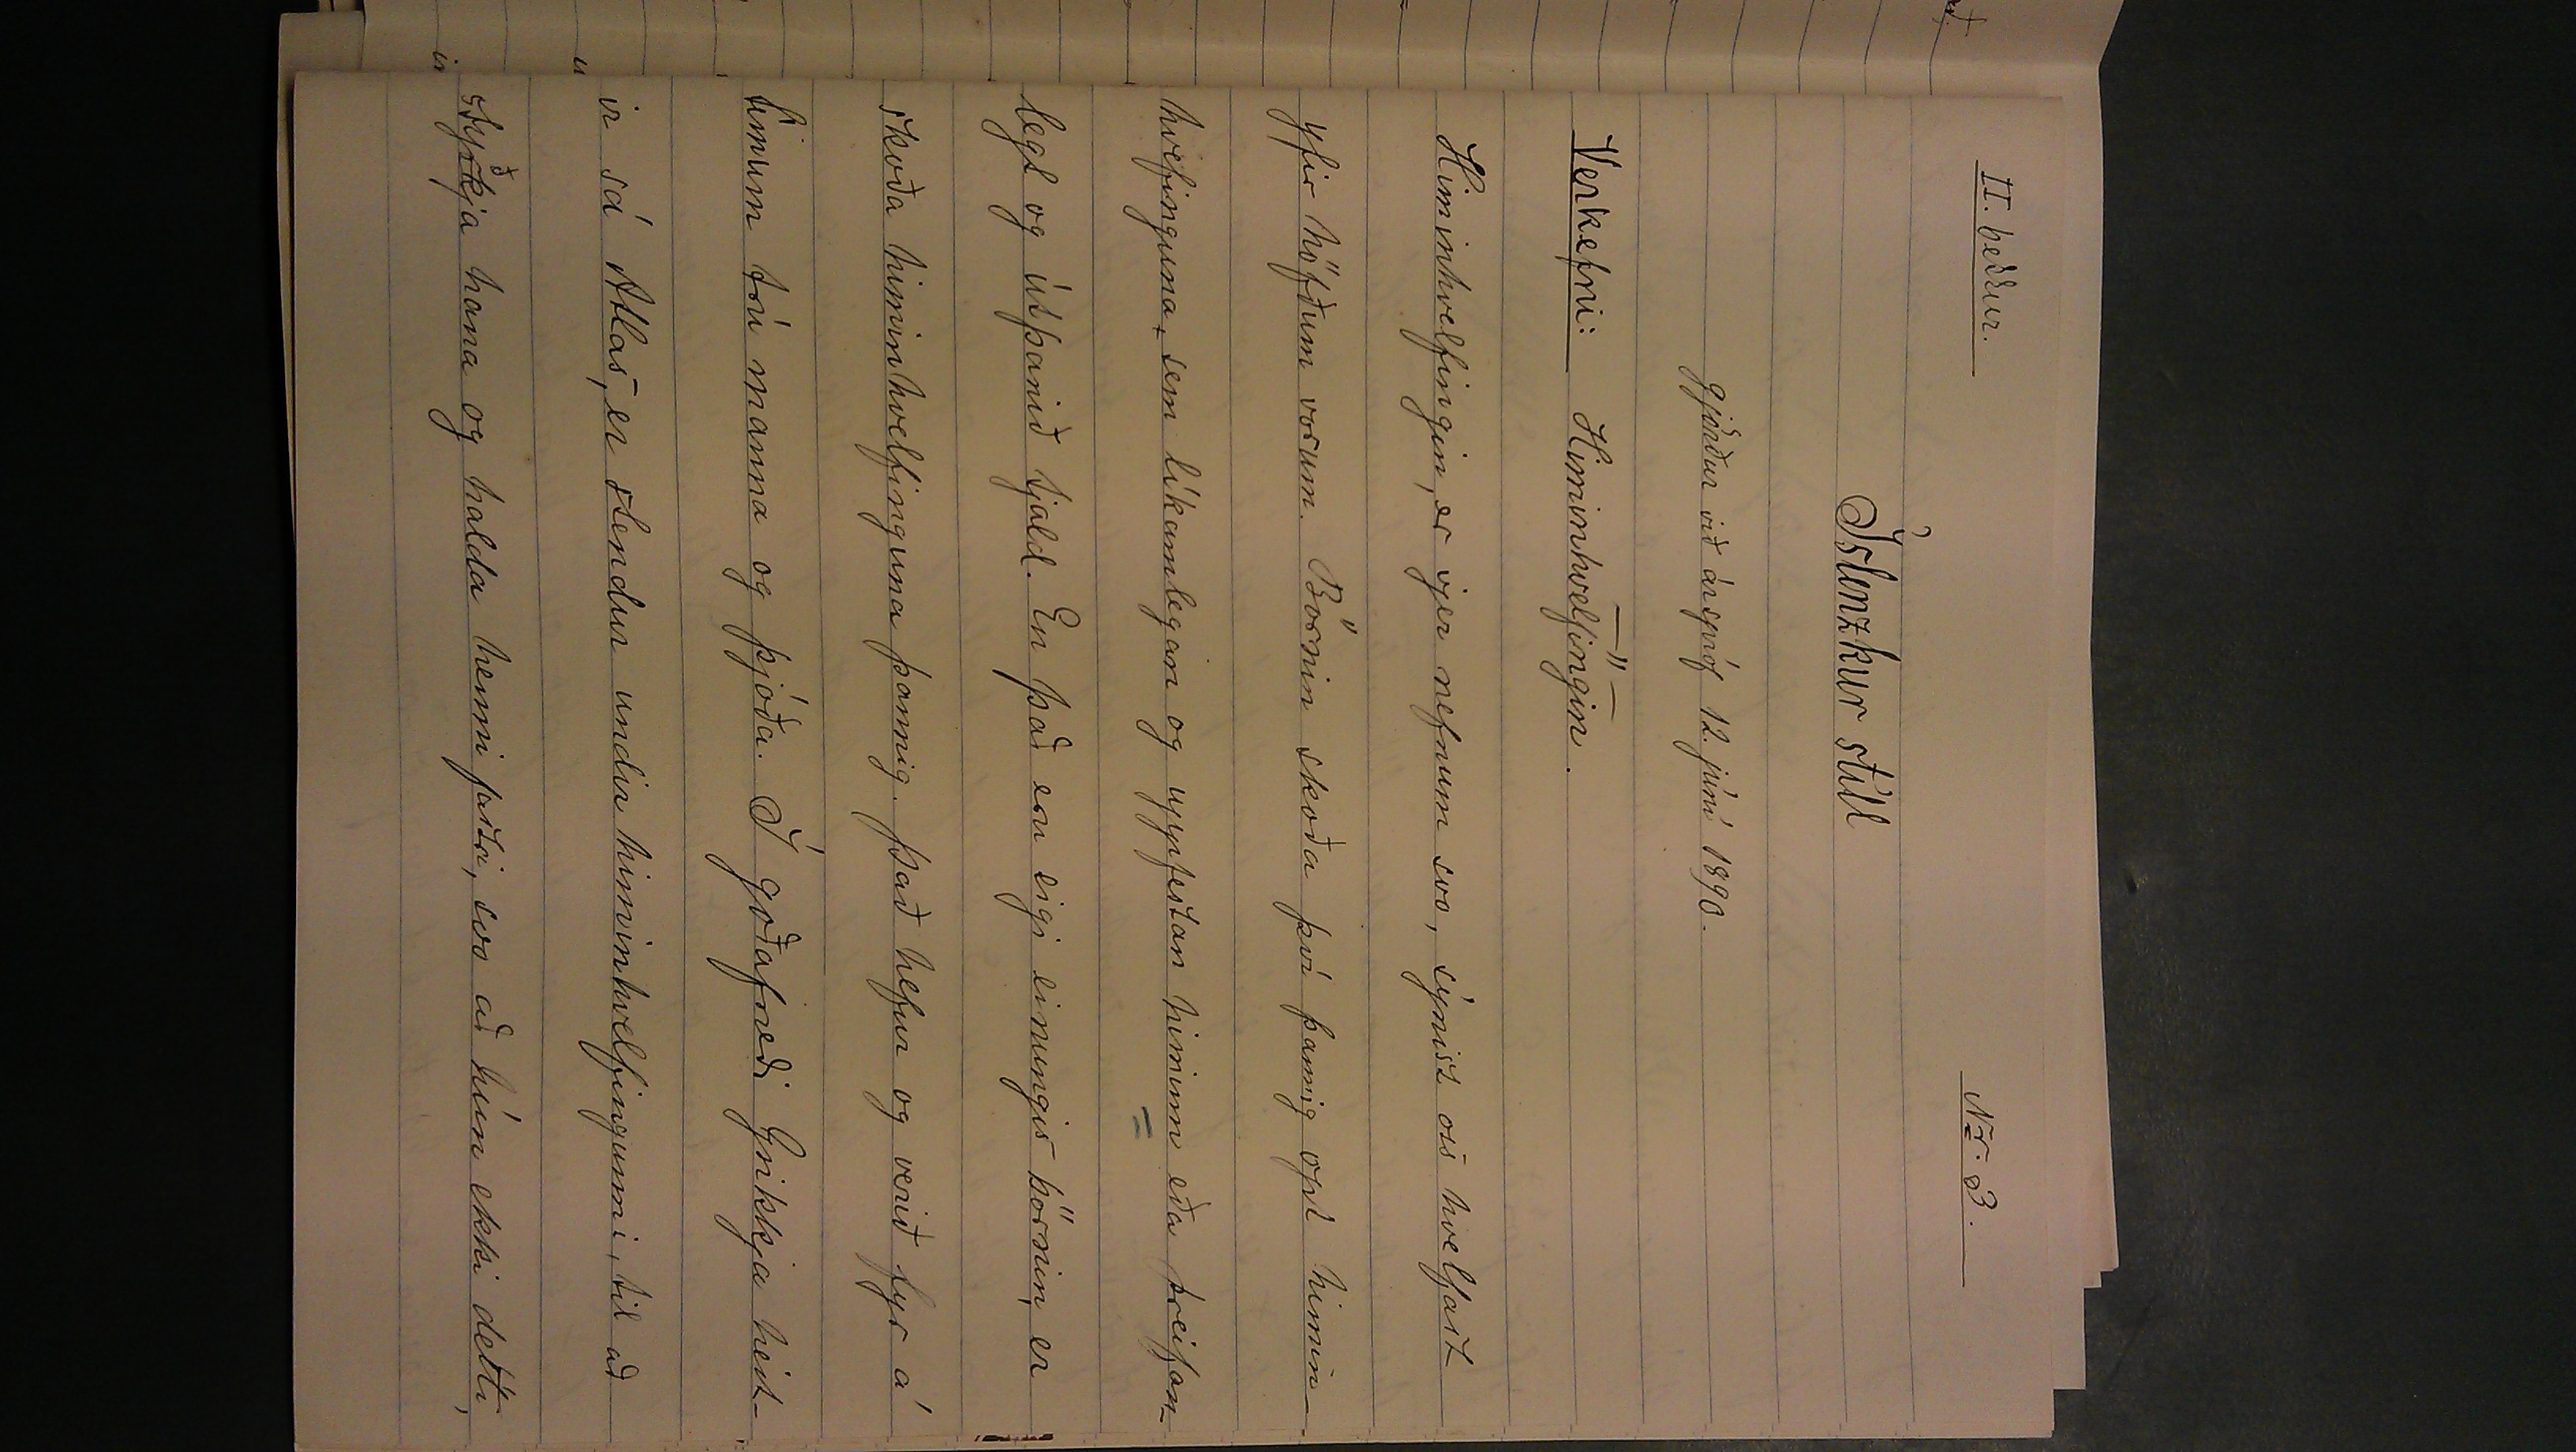 II. bekkur.
Nr. 3.
Íslenzkur stíll
gjörður við árspróf 12. júní 1890.
—"—
Verkefni: Himinhvelfingin.
Himinhvelfingin, er vjer nefnum svo, sýnist oss hvelfast
yfir höfðum vorum. Börnin skoða því þannig opt himin-
hvelfinguna, sem líkamlegan og uppfestan himinn eða þreifan-
legt og útþanið tjald. En það eru eigi einungis börnin, er
skoða himinhvelfinguna þannig. Það hefur og verið fyr á
tímum trú manna og þjóða. Í goðafræði Grikkja heit-
ir sá Atlas, er stendur undir himinhvelfingunni, til að
styðkja hana og halda henni fastri, svo að hún ekki detti,